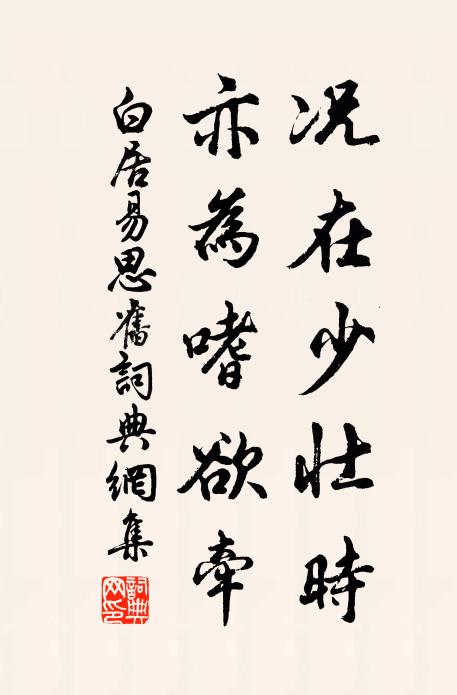 况在少壮時
亦為嗜欲牽
白居易思舊詞典網集
詞典网印